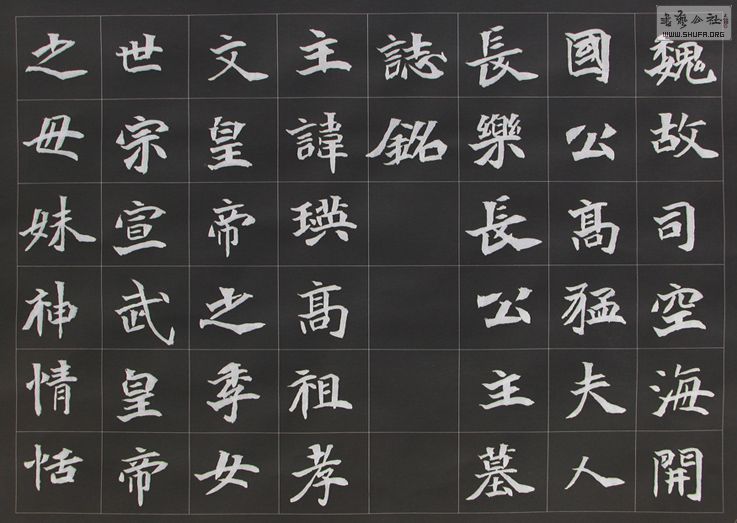 魏故司空海開
國公高猛夫人
長樂長公主墓
誌銘
主諱瑛高祖孝
文皇帝之季女
世宗宣武皇帝
之母妹神情恬
書藝公社
WWW.SHUFA.ORG